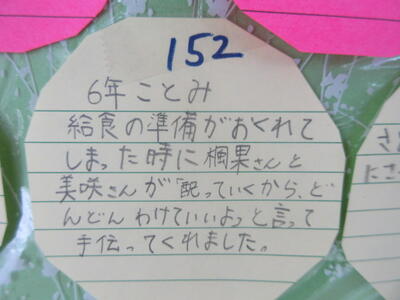 152
6年 ことみ
給食の準備がおくれて
しまった時に楓果さんと
美咲さんが「配っていくから、ど
んどんわけていいよっと言って
手伝ってくれました。
さ
にさ